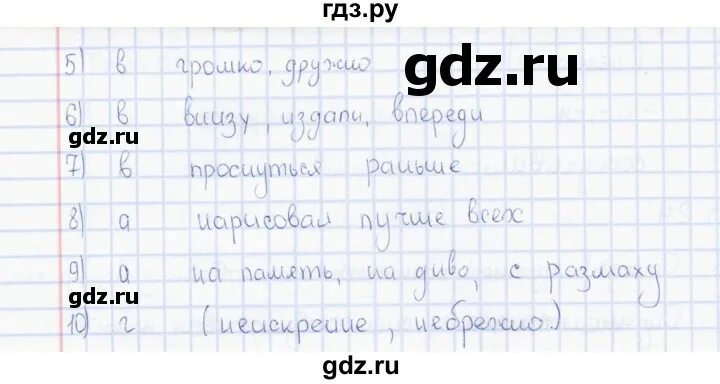 гдз.ру
5) в громко, дружно
gdz.ru
6) в внизу, издали, впереди
gdz.ru
7) в проснуться раньше
gdz.ru
8) а нарисовал лучше всех
9) а на память, на диво, с размаху
gdz.ru
10) г (неискренне, небрежно.)
gdz.ru